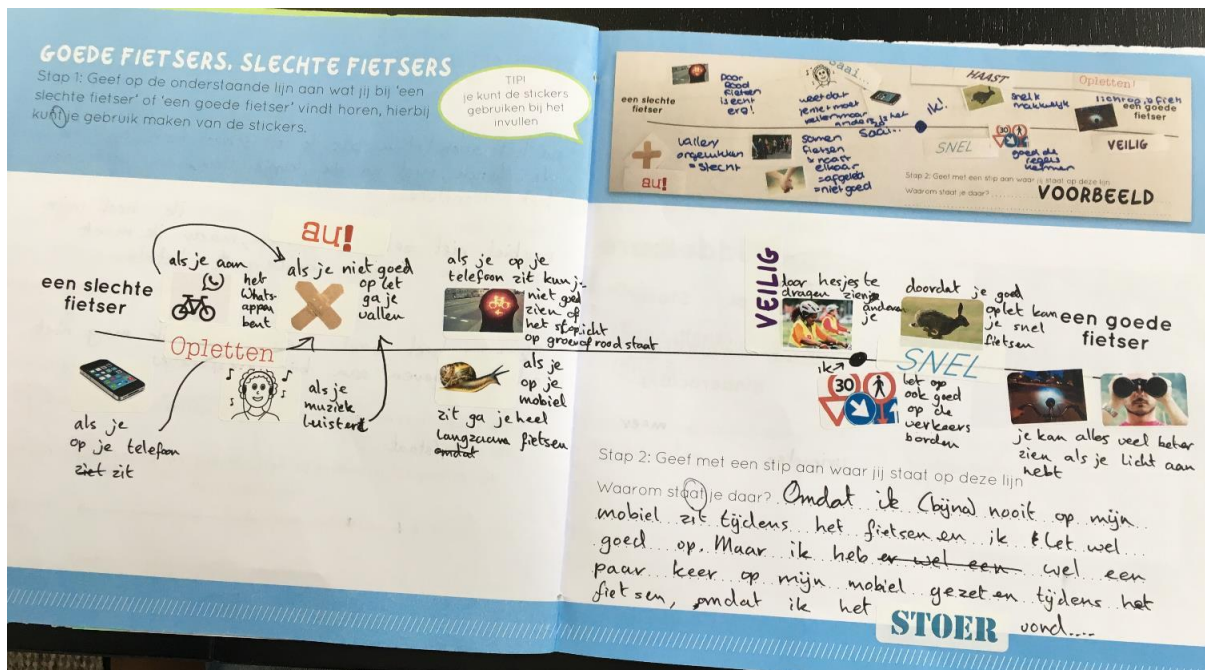 GOEDE FIETSERS, SLECHTE FIETSERS
Stap 1: Geef op de onderstaande lijn aan wat jij bij 'een
slechte fietser' of 'een goede fietser' vindt horen, hierbij
kunt je gebruik maken van de stickers.
TIP!
je kunt de stickers
gebruiken bij het
invullen
een slechte
fietser
Door
Rood
fietsen
is echt
erg!
saai...
weet dat
je niet moet
saai...
vallen
ongelukken
= slecht
au!
samen
fietsen
& naast
elkaar
= afgeleid
= niet goed
ik!
HAAST
snel &
makkelijk
Opletten!
een goede
fietser
SNEL
goed de
regels
kennen
VEILIG
Stap 2: Geef met een stip aan waar jij staat op deze lijn
Waarom sta je daar?
VOORBEELD
een slechte
fietser
als je aan
het
Whats-
appen
bent
au!
als je niet goed
op let
ga je
vallen
als je op je
telefoon zit kun je
niet goed
zien of
het stoplicht
op groen of rood staat
Opletten
als je
op je telefoon
zit
als je
muziek
luistert
als je
op je
mobiel
zit ga je heel
langzaam fietsen
omdat
VEILIG
door hesjes te
dragen zien
anderen
je
doordat je goed
oplet kan
je snel
fietsen
een goede
fietser
ik
SNEL
30
let op
ook goed
op de
verkeers
borden
je kan alles veel beter
zien als je licht aan
hebt
Stap 2: Geef met een stip aan waar jij staat op deze lijn
Waarom staat je daar? Omdat ik (bijna) nooit op mijn
mobiel zit tijdens het fietsen en ik let wel
goed op. Maar ik heb er wel een wel een
paar keer op mijn mobiel gezeten tijdens het
fietsen, omdat ik het STOER vond....